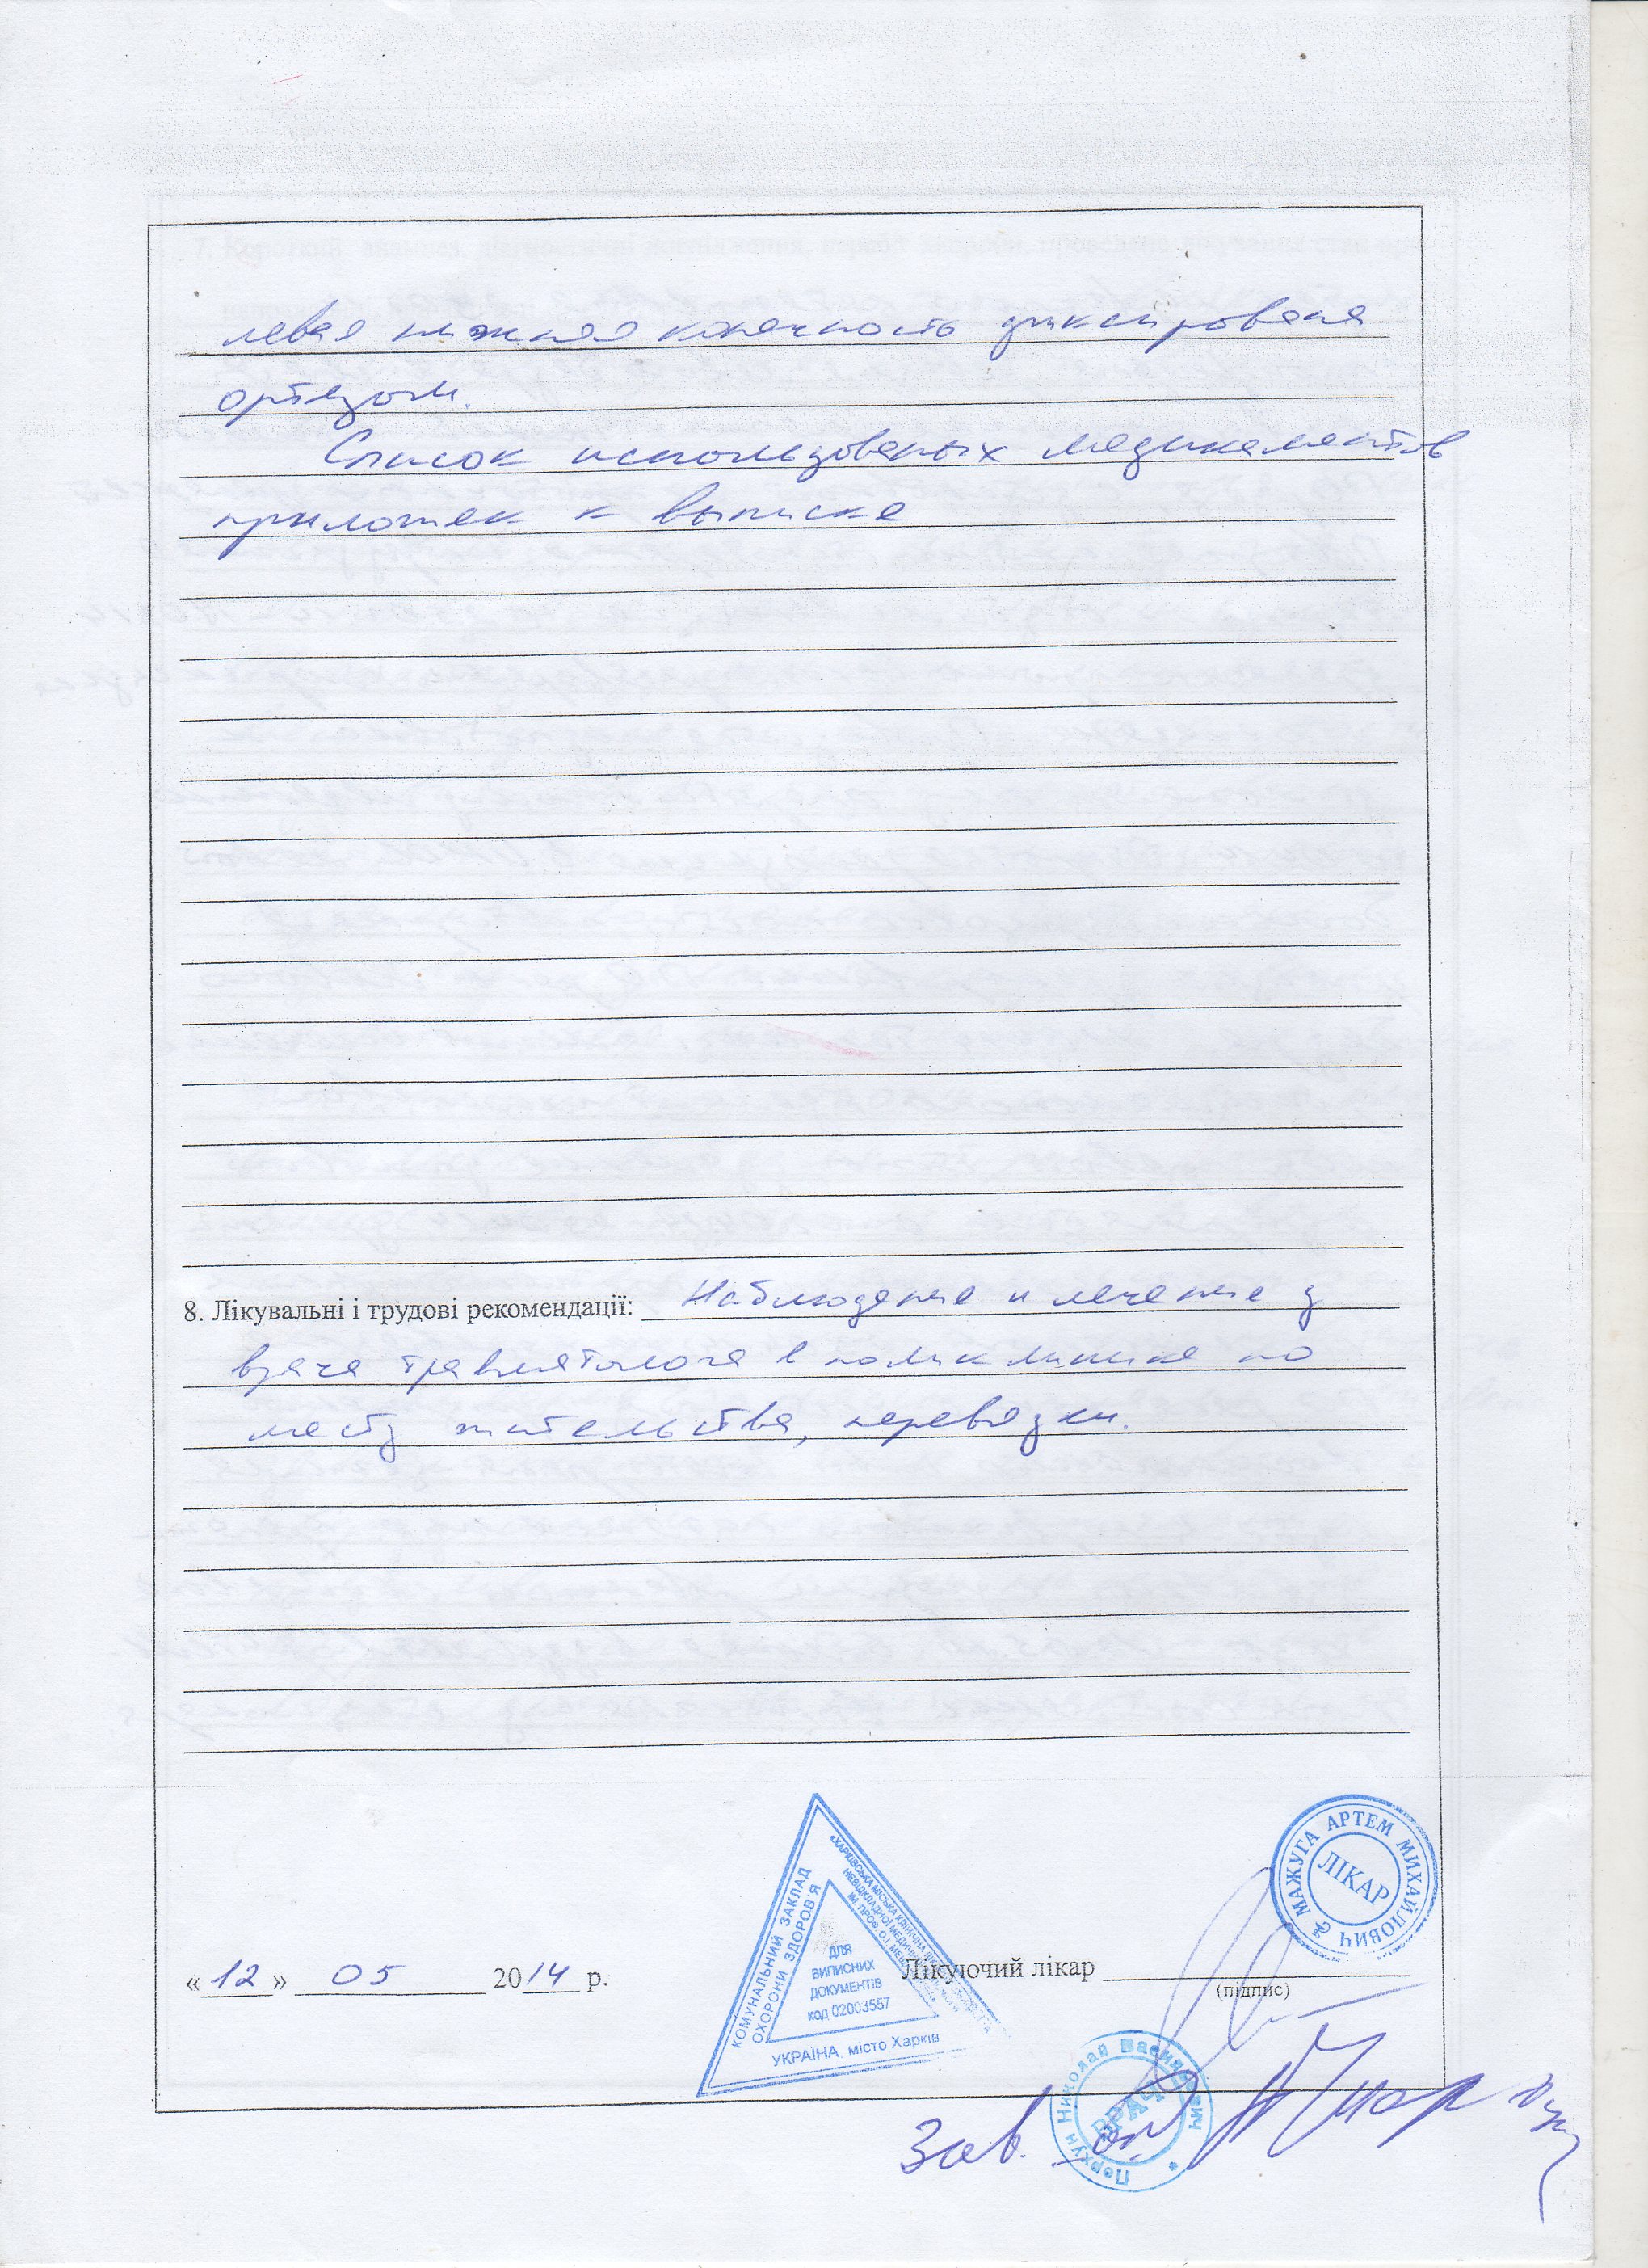 левая нижняя конечность фиксирована
ортезом.
Список использованых медикаментов
приложен к выписке
8. Лікувальні і трудові рекомендації: Наблюдение и лечение у
врача травматолога в поликлинике по
месту жительства, перевязки.
МАЖУГА АРТЕМ МИХАЙЛОВИЧ
ЛІКАР
КОМУНАЛЬНИЙ ЗАКЛАД
ОХОРОНИ ЗДОРОВ'Я
«ХАРКІВСЬКА МІСЬКА КЛІНІЧНА
НЕВІДКЛАДНОЇ МЕДИЧНОЇ
ІМ. ПРОФ. О.І.
ДЛЯ
ВИПИСНИХ
ДОКУМЕНТІВ
код 02003557
УКРАЇНА, місто Харків
«12» 05 2014 р.
Лікуючий лікар
(підпис)
Николай Васильевич
ВРАЧ
Зав.